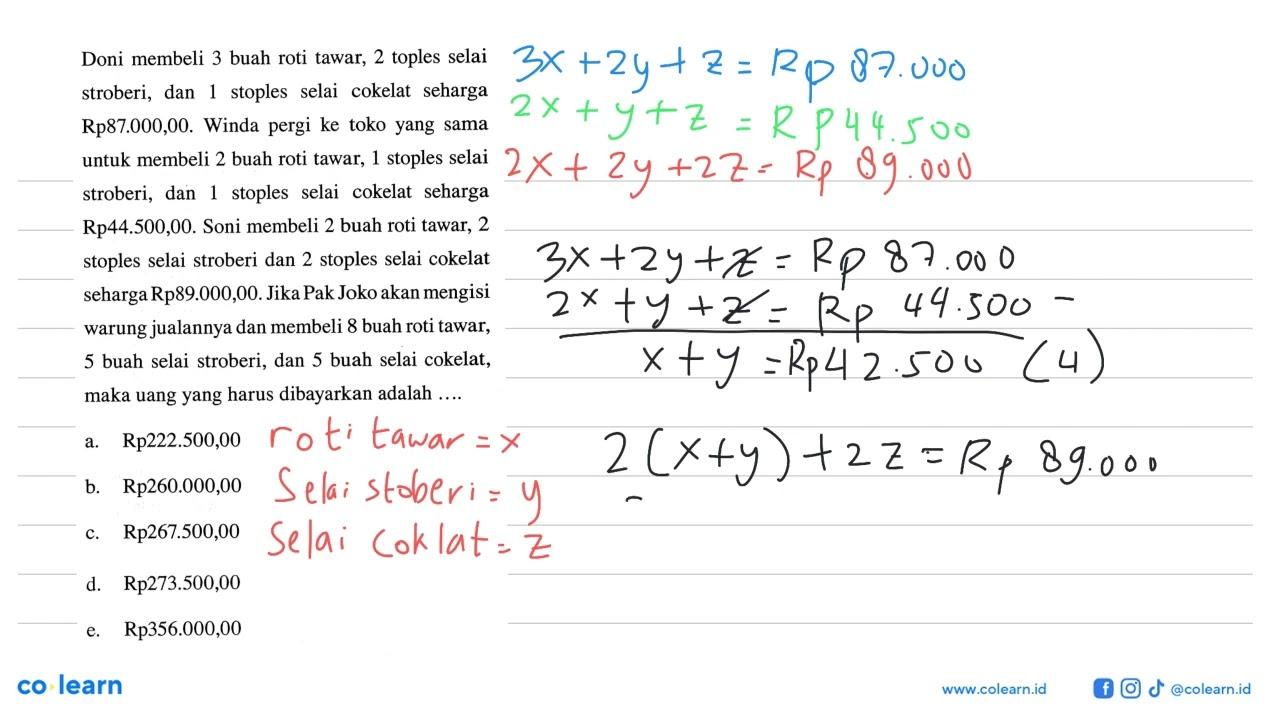 Doni membeli 3 buah roti tawar, 2 toples selai
stroberi, dan 1 stoples selai cokelat seharga
Rp87.000,00. Winda pergi ke toko yang sama
untuk membeli 2 buah roti tawar, 1 stoples selai
stroberi, dan 1 stoples selai cokelat seharga
Rp44.500,00. Soni membeli 2 buah roti tawar, 2
stoples selai stroberi dan 2 stoples selai cokelat
seharga Rp89.000,00. Jika Pak Joko akan mengisi
warung jualannya dan membeli 8 buah roti tawar,
5 buah selai stroberi, dan 5 buah selai cokelat,
maka uang yang harus dibayarkan adalah ....
a. Rp222.500,00
b. Rp260.000,00
c. Rp267.500,00
d. Rp273.500,00
e. Rp356.000,00
roti tawar = x
Selai stoberi = y
Selai coklat = z
3x + 2y + z = Rp 87.000
2x + y + z = Rp 44.500
2x + 2y + 2z = Rp 89.000
3x + 2y + z = Rp 87.000
2x + y + z = Rp 44.500 -
x + y = Rp 42.500 (4)
2(x+y) + 2z = Rp 89.000
co learn
www.colearn.id
@colearn.id